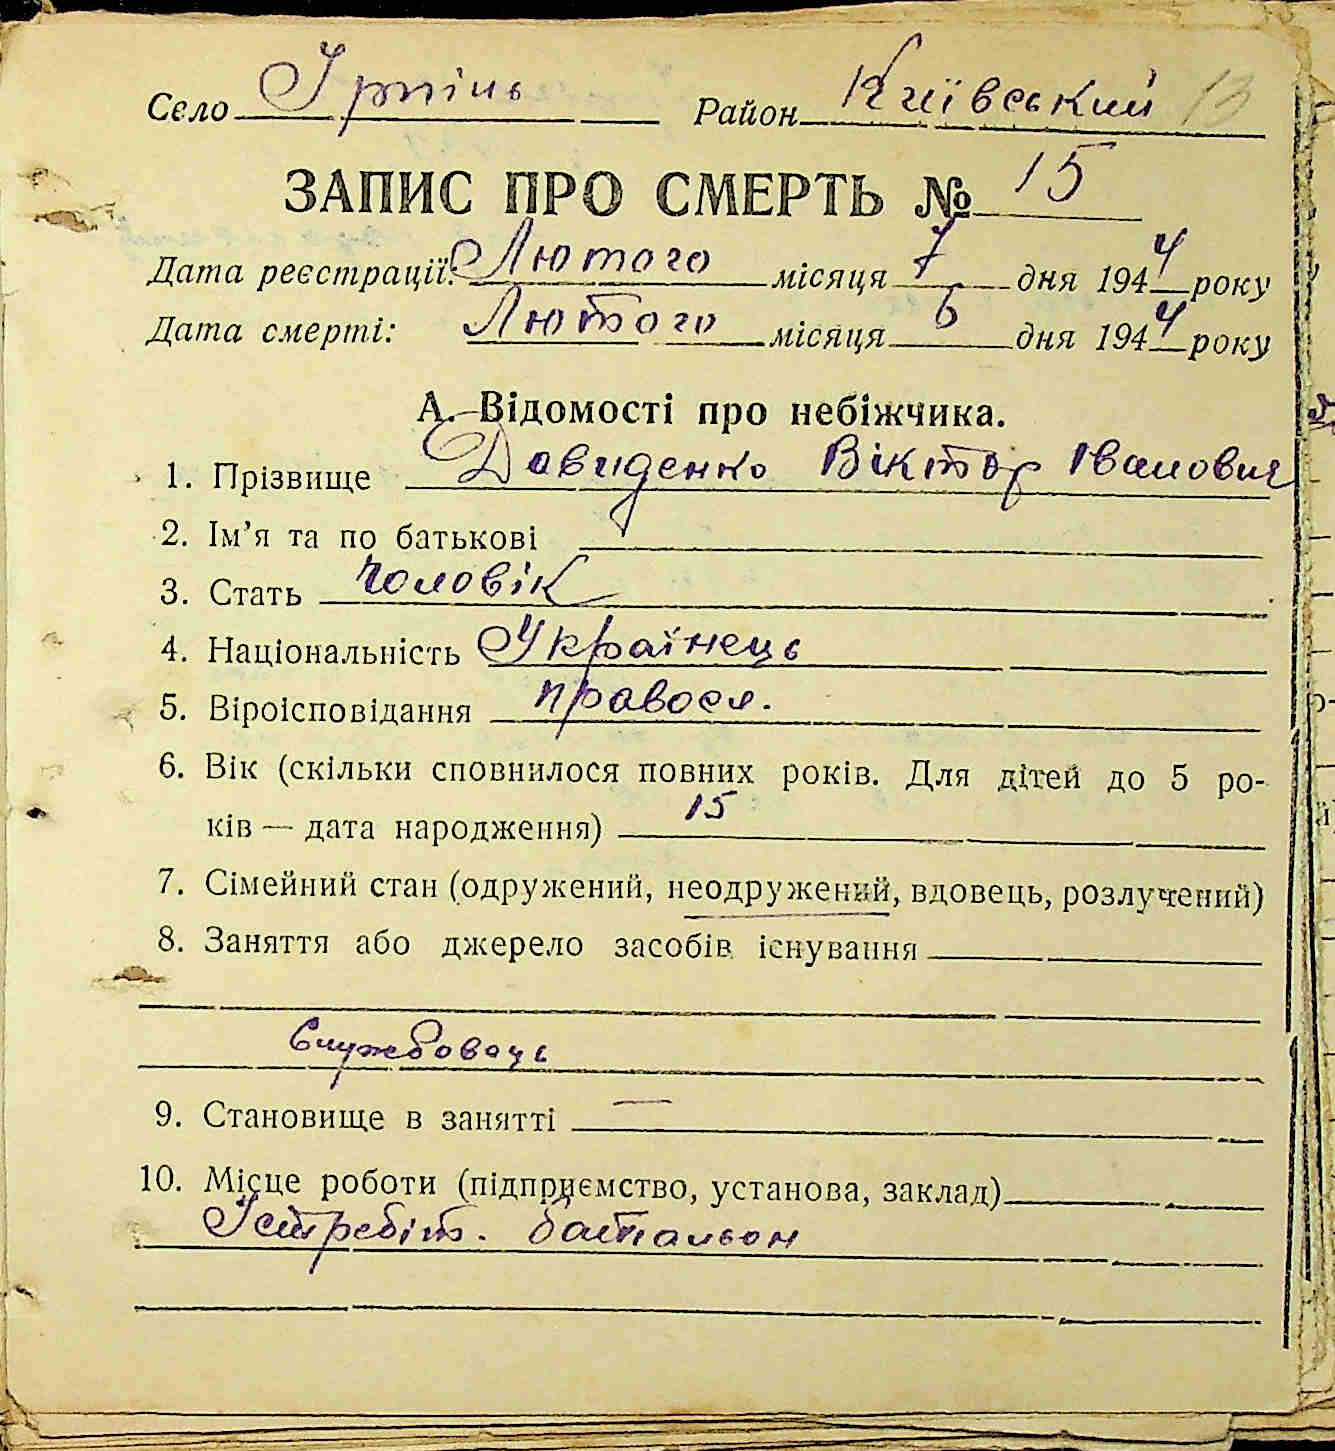 Село Ірпінь Район Київський 13
ЗАПИС ПРО СМЕРТЬ № 15
Дата реєстрації: Лютого місяця 7 дня 1944 року
Дата смерті: Лютого місяця 6 дня 1944 року
А. Відомості про небіжчика.
1. Прізвище Давиденко Віктор Іванович
2. Ім’я та по батькові
3. Стать Чоловік
4. Національність Українець
5. Віроісповідання правосл.
6. Вік (скільки сповнилося повних років. Для дітей до 5 ро-
ків — дата народження) 15
7. Сімейний стан (одружений, неодружений, вдовець, розлучений)
8. Заняття або джерело засобів існування
Службовець
9. Становище в занятті —
10. Місце роботи (підприємство, установа, заклад)
Істребіт. батальон